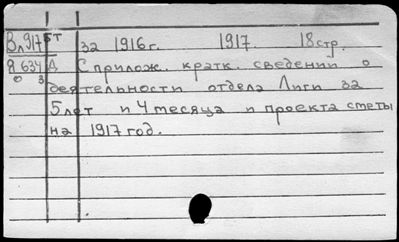 Вл917 5т за 1916г. 1917. 18стр.
Я 634 Д С прилож. кратк. сведений о
0 3 деятельности отдела Лиги за
5 лет и 4 месяца и проекта сметы
на 1917 год.